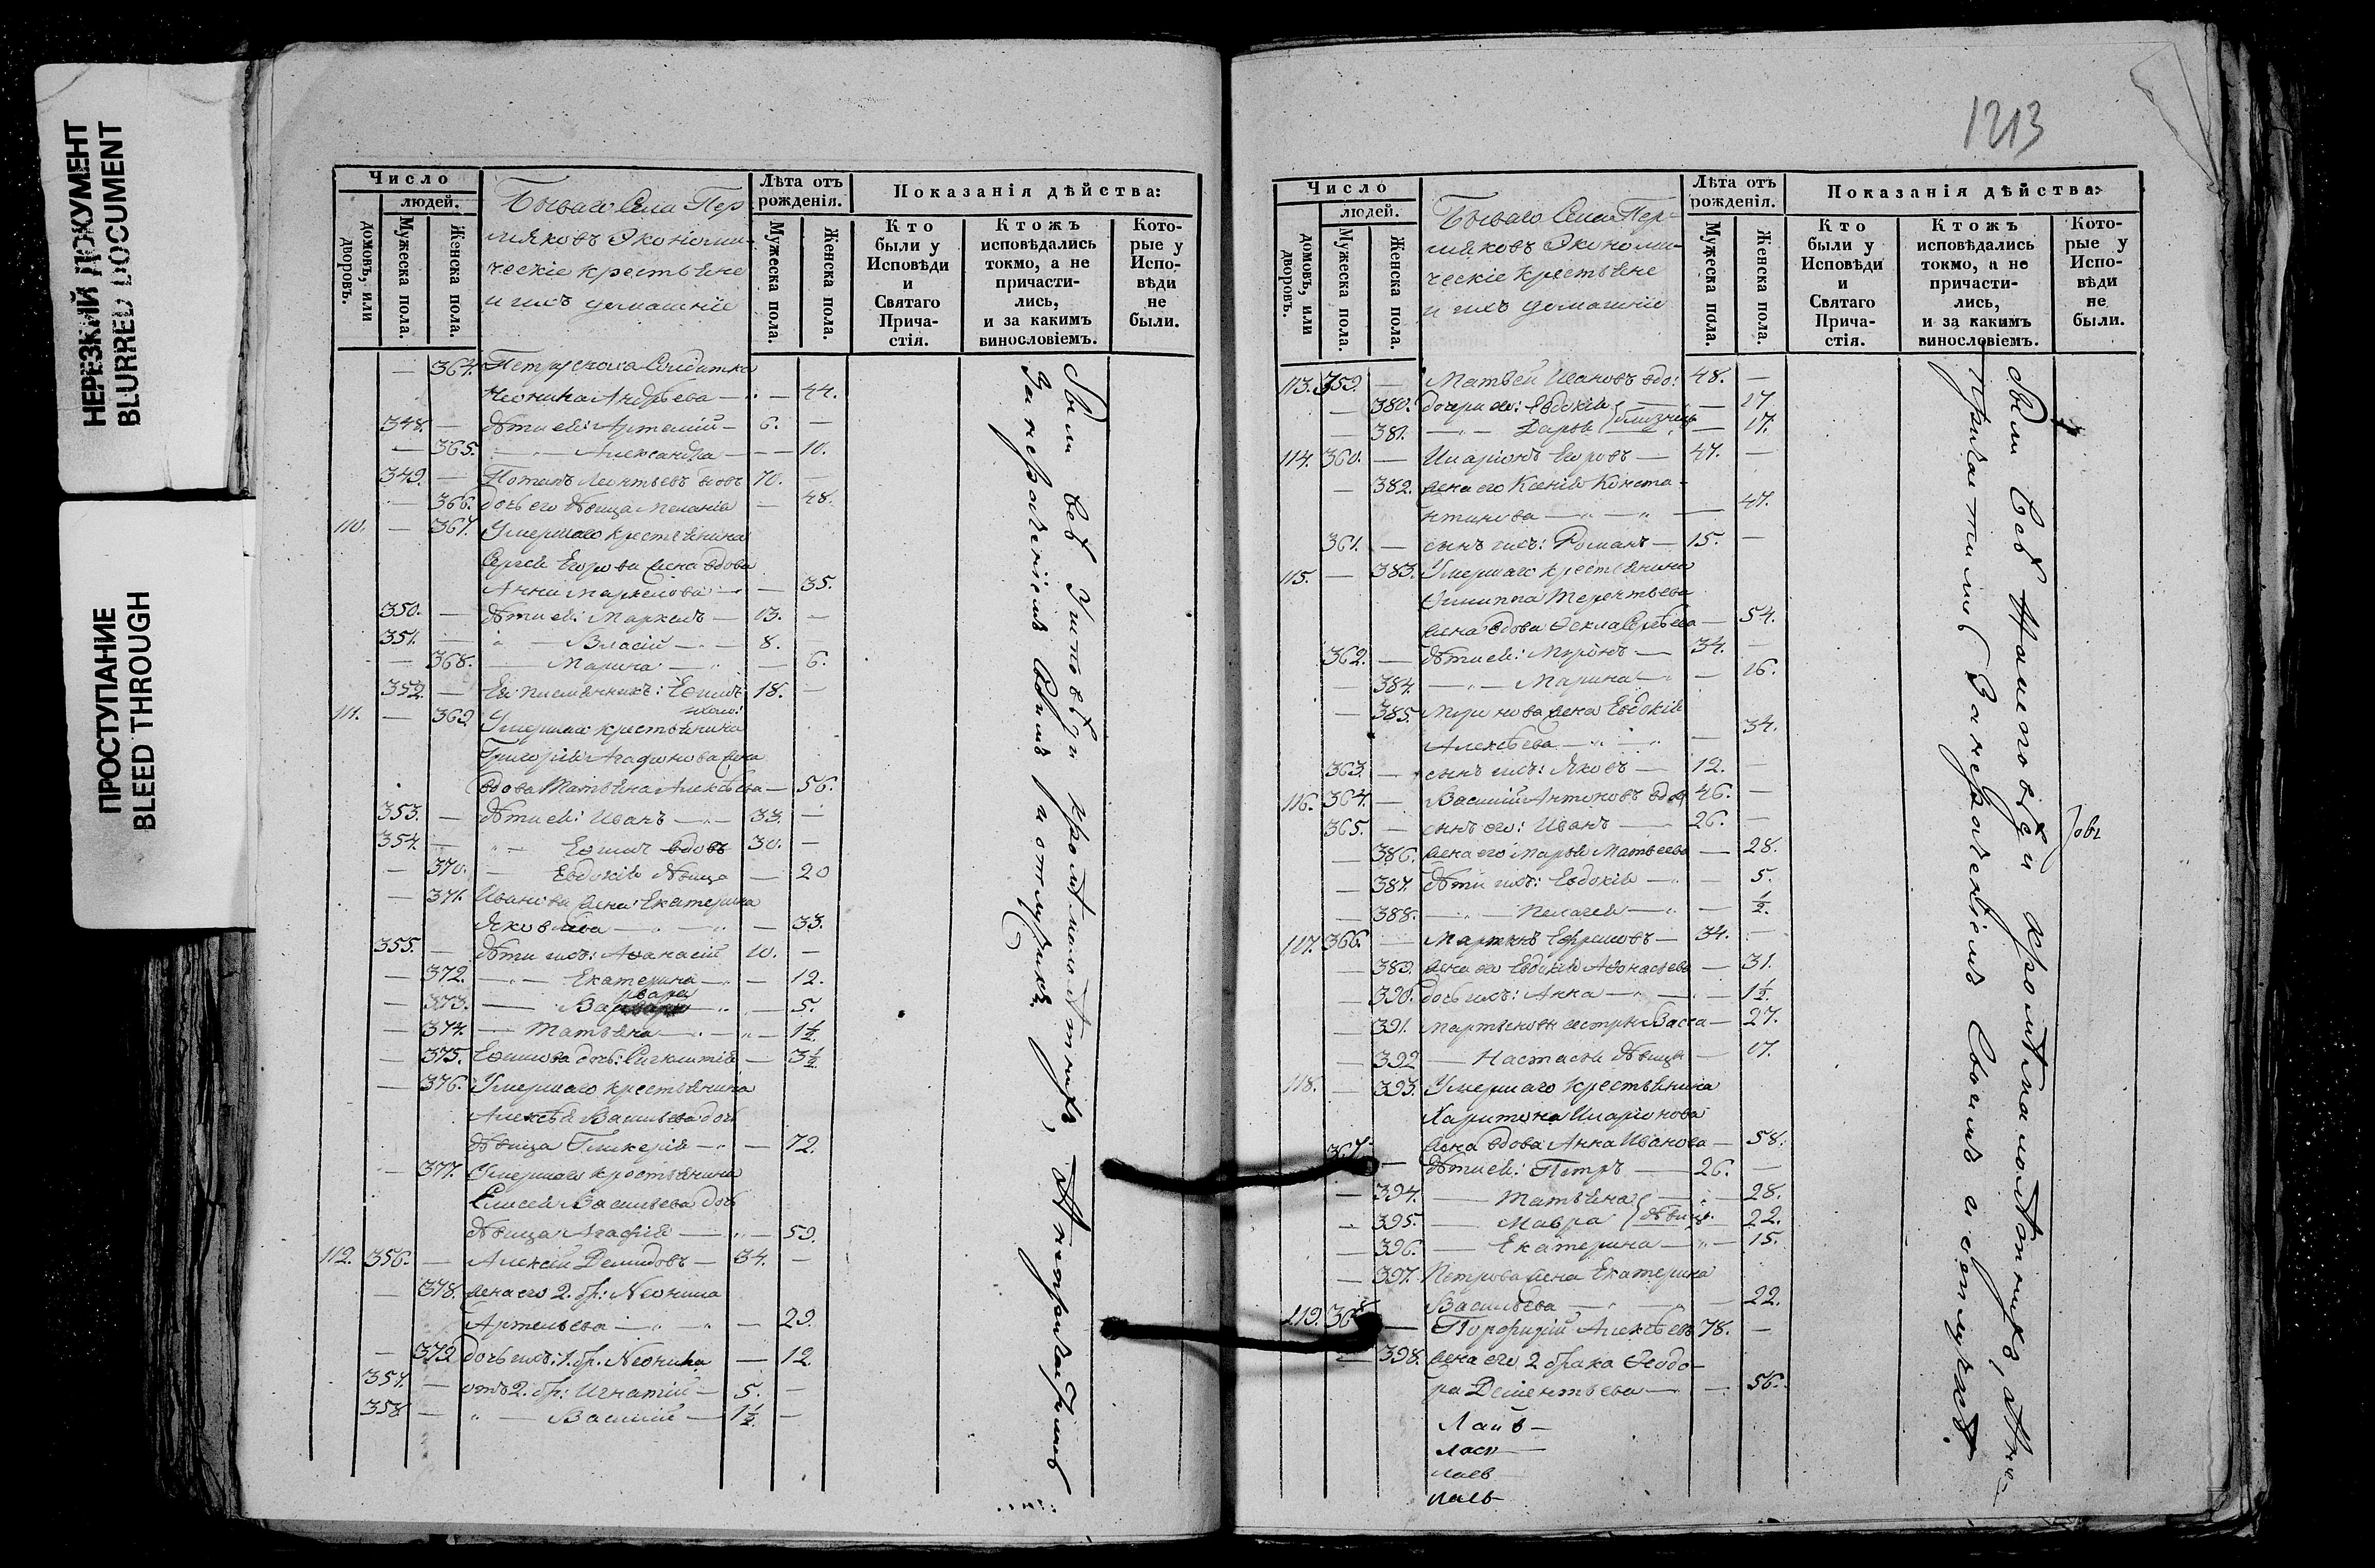 НЕРЕЗКИЙ ДОКУМЕНТ
BLURRED DOCUMENT
ПРОСТУПАНИЕ
BLEED THROUGH
Число
людей.
домовъ, или дворовъ.
Мужеска пола.
Женска пола.
Бываго Села Пер
мяковъ Экономи-
ческіе крестьяне
и ихъ домашніе
Лѣта отъ рожденія.
Мужеска пола.
Женска пола.
Показанія дѣйства:
Кто были у Исповѣди и Святаго Прича-стія.
Ктожъ исповѣдались токмо, а не причасти-лись, и за какимъ винословіемъ.
Кото-рые у Испо-вѣди не были.
— 364. Солдатка
Андрѣева — 44.
348. — дѣти ея: Артемий — 6. —
— 365. Александра — 10.
349. — Потапъ Леонтьевъ вдовъ 70. —
— 366. дочь его дѣвица Меланія — 48.
110. — 367. Умершаго крестьянина
Сергея Егорова жена вдова
Анна Маркелова — 35.
350. — дѣти ея: Маркелъ — 13. —
351. — Власій — 8.
— 368. Марина — 6.
352. — Ея племянникъ: Ефимъ 18. —
111. — 369 Умершаго крестьянина
Григорія Агафонова жена
вдова Татьяна Алексѣева — 56.
353. — дѣти ея: Иванъ — 33. —
354. — Ефимъ вдовъ 30. —
— 370. Евдокія дѣвица — 20
— 371. Иванова жена Екатерина
Яковлева — 33.
355. — дѣти ихъ: Афанасій 10. —
— 372. Екатерина — 12.
— 373. Варвара — 5.
— 374. Татьяна — 1½
— 375. Ефимова дочь: — 3½
— 376. Умершаго крестьянина
Алексѣя Васильева дочь
дѣвица Гликерія — 72.
— 377. Умершаго крестьянина
Елисея Васильева дочь
дѣвица Агафія — 59.
112. 356. — Алексѣй Демидовъ — 34. —
— 378. жена его 2. бр: Неонила
Артемьева — 29.
— 379 дочь ихъ: 1. бр. Неонила — 12.
357. — отъ 2. бр: Игнатій — 5. —
358 — Василий — 1½ —
Были всѣ у исповѣди кромѣ малолѣтнихъ, а не причастились
За нераченіемъ своимъ и отлучкою.
1213
Число
людей.
домовъ, или дворовъ.
Мужеска пола.
Женска пола.
Бываго Села Пер-
мяковъ Экономи-
ческіе крестьяне
и ихъ домашніе
Лѣта отъ рожденія.
Мужеска пола.
Женска пола.
Показанія дѣйства:
Кто были у Исповѣди и Святаго Прича-стія.
Ктожъ исповѣдались токмо, а не причасти-лись, и за какимъ винословіемъ.
Кото-рые у Испо-вѣди не были.
113. 359. — Матвей Ивановъ вдо: 48. —
— 380. дочери его: Евдокія — 17
— 381. Дарья близнецы — 17.
114. 360. — Иларіонъ Егоровъ — 47. —
— 382. жена его Ксенія Конста-
нтинова — 47.
361. — сынъ ихъ: Романъ — 15. —
115. — 383. Умершаго крестьянина
Филиппа Терентьева
жена вдова Фекла Сергѣева — 54.
362. — дѣти ея: Миронъ — 34. —
— 384. Марина — 16.
— 385. Миронова жена Евдокія
Алексѣева — 34.
363. — сынъ ихъ: Яковъ — 12. —
116. 364. — Василий Антоновъ вдов 46. —
365. — сынъ его: Иванъ — 26. —
— 386. жена его Марья Матвеева — 28.
— 387. дѣти ихъ: Евдокія — 5.
— 388. Пелагея — ½.
117. 366. — Мартинъ Ефремовъ — 34. —
— 389. жена его Евдокія Афонасьева — 31.
— 390. дочь ихъ: Анна — 1½.
— 391. Мартыновы сестры Васса — 27.
— 392 Настасья дѣвицы — 17.
118. — 393. Умершаго крестьянина
Харитона Иларіонова
жена вдова Анна Иванова — 58.
367. — дѣти ея: Петръ — 26. —
— 394. Татьяна — 28.
— 395. Мавра дѣвицы — 22.
— 396. Екатерина — 15.
— 397. Петрова жена Екатерина
Васильева — 22.
119. 368 — Порфирій Алексѣевъ 78. —
— 398. жена его 2 брака Феодо-
ра Дементьева — 56.
Были всѣ у исповѣди кромѣ малолѣтнихъ, а не
причастились За нераченіемъ своимъ и отлучкою.